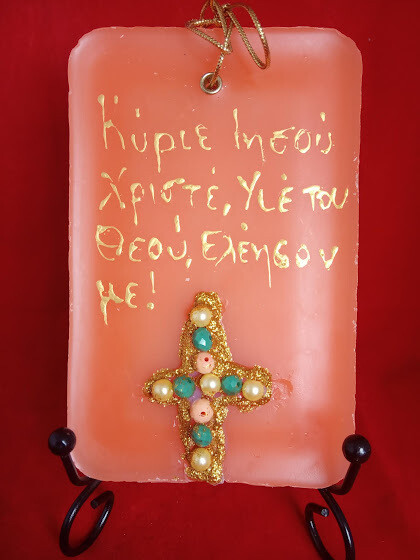 Κύριε Ιησού
Χριστέ, Υιέ του
Θεού, Ελέησον
με!